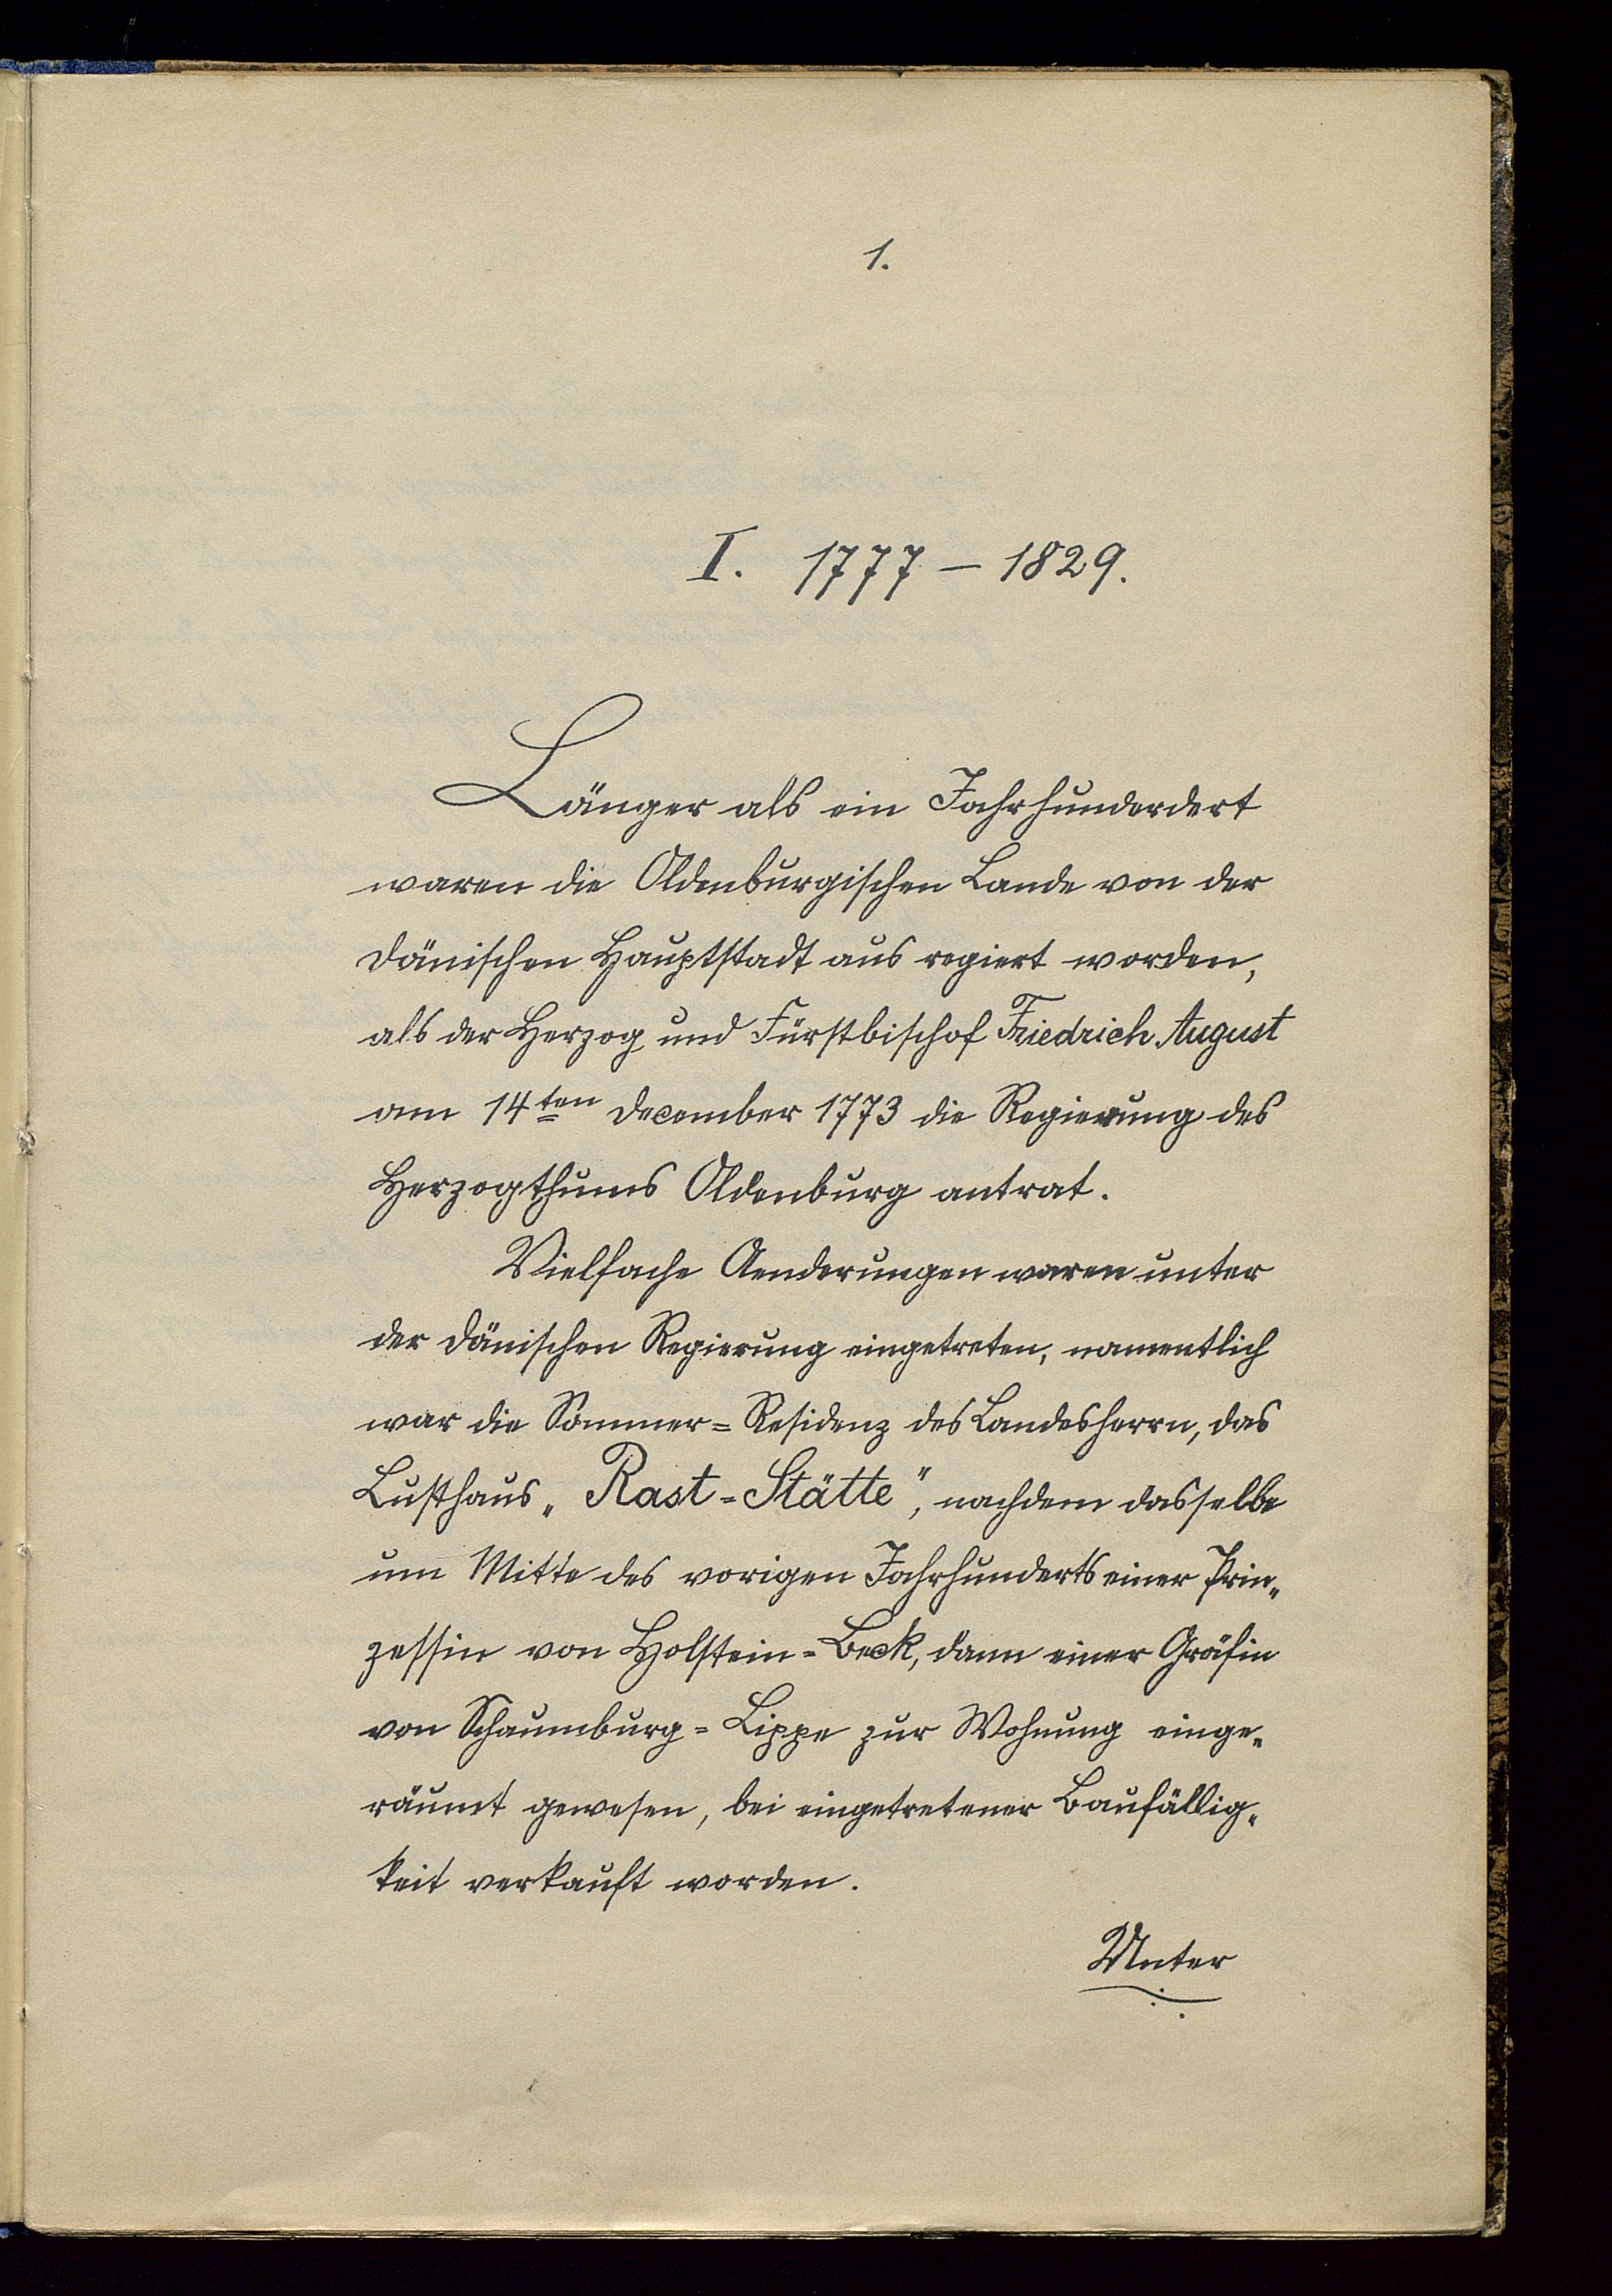 1.
I. 1777 – 1829.
Länger als ein Jahrhunderdert
waren die Oldenburgischen Lande von der
dänischen Hauptstadt aus regiert worden,
als der Herzog und Fürstbischof Friedrich August
am 14ten December 1773 die Regierung des
Herzogthums Oldenburg antrat.
Vielfache Aenderungen waren unter
der dänischen Regierung eingetreten, namentlich
war die Sommer=Residenz des Landesherrn, das
Lusthaus „Rast=Stätte", nachdem dasselbe
um Mitte des vorigen Jahrhunderts einer Prin„
zessin von Holstein=Beck, dann einer Gräfin
von Schaumburg=Lippe zur Wohnung einge„
räumt gewesen, bei eingetretener Baufällig„
keit verkauft worden.
Unter